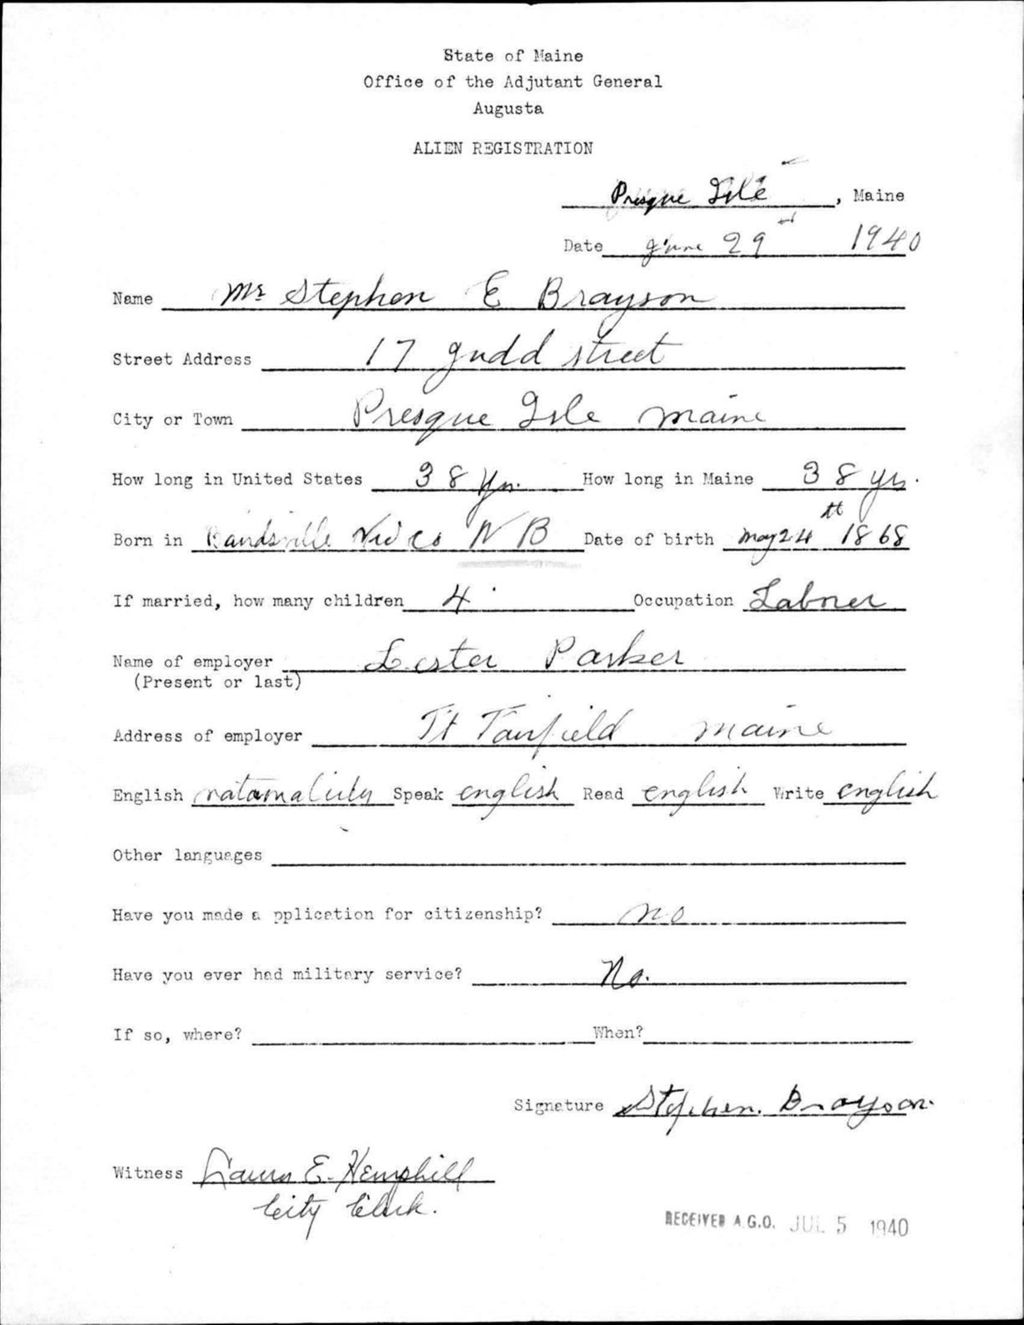 State of Maine
Office of the Adjutant General
Augusta
ALIEN REGISTRATION
Presque Isle, Maine
Date June 29 1940
Name Mr Stephen E Brayson
Street Address 17 Judd street
City or Town Presque Isle maine
How long in United States 38 yrs. How long in Maine 38 yrs.
Born in Vic Co N B Date of birth may 24th 1868
If married, how many children 4 Occupation Laborer
Name of employer Lester Parker
(Present or last)
Address of employer Ft Fairfield maine
English Speak english Read english Write english
Other languages
Have you made a pplication for citizenship? no
Have you ever had military service? No.
If so, where? When?
Signature Stephen. Brayson.
Witness Laura E. Hemphill
City Clerk.
RECEIVED A.G.O. JUL 5 1940